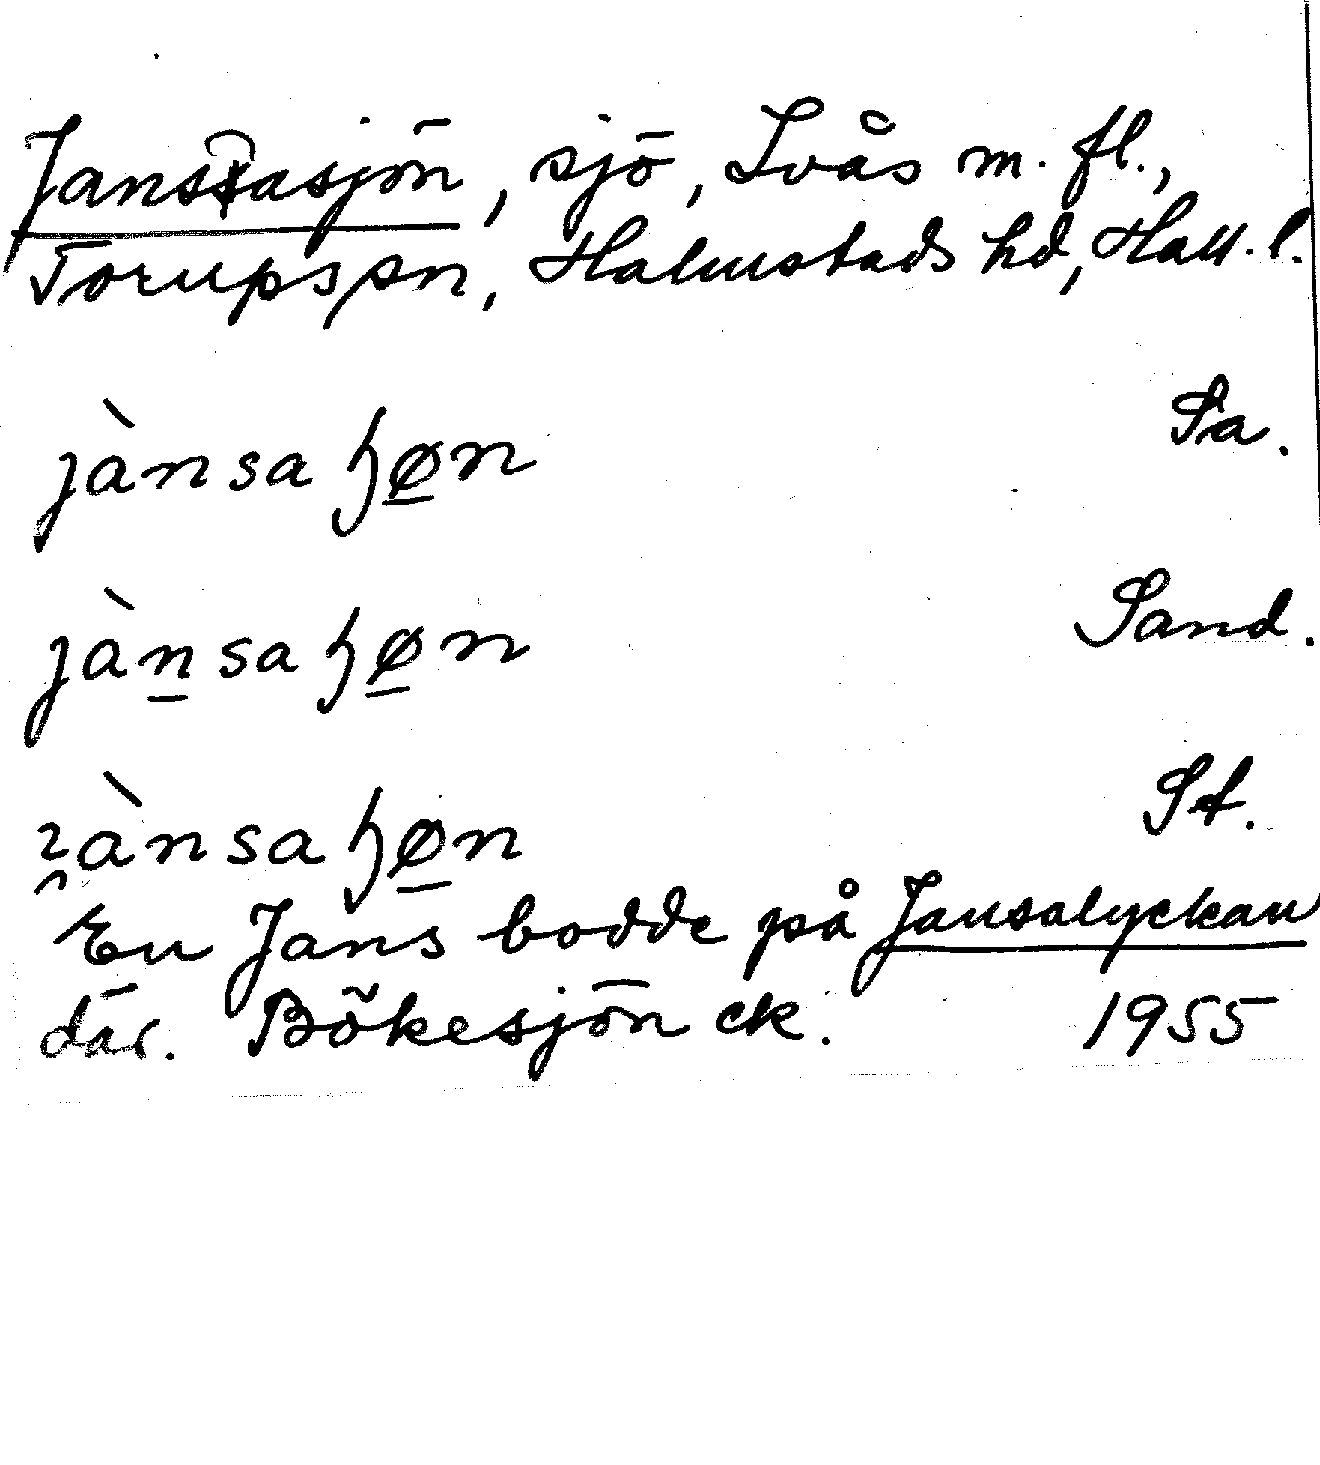 Janssasjön, sjö, Lvås m. fl.,
Torups sn, Halmstads hd, Hall. l.
jànsaɧø̲n Sa.
jàn̲saɧø̲n Sand.
ànsaɧø̲n St.
En Jans bodde på Jansalyckan
där. Bökesjön ek. 1955